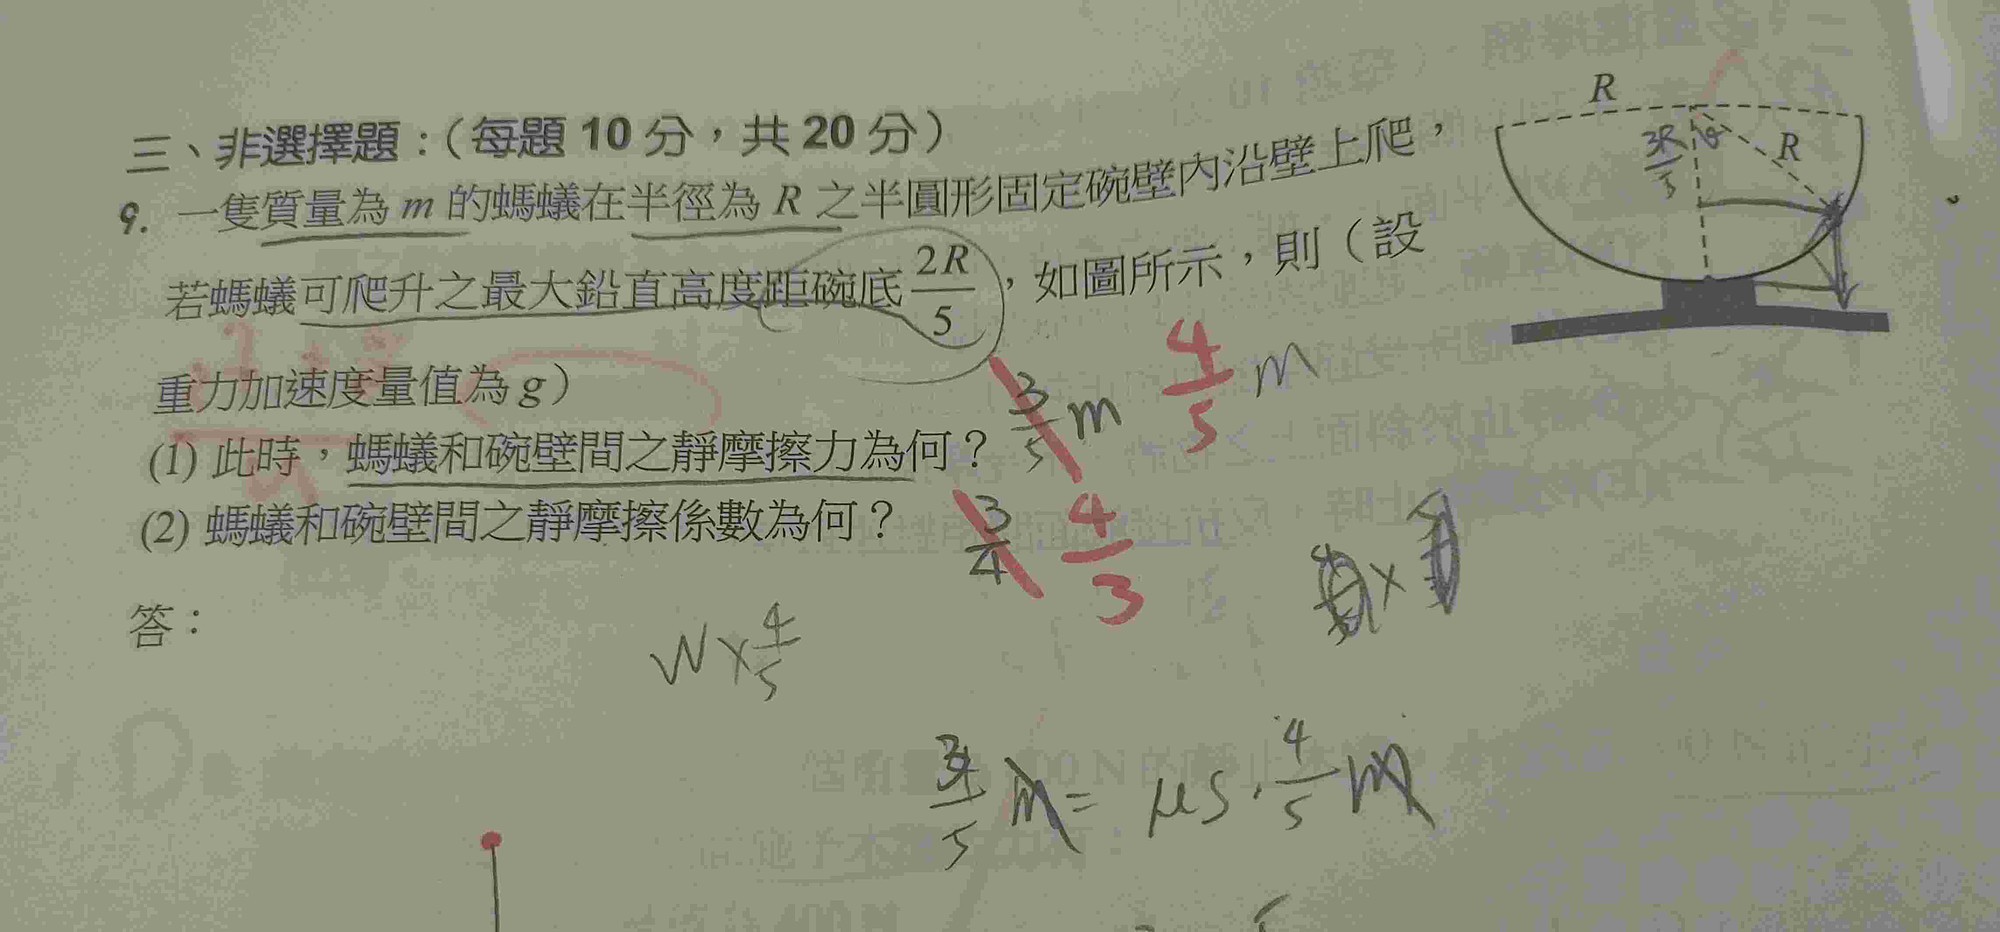 三、非選擇題：（每題 10 分，共 20 分）
9. 一隻質量為 m 的螞蟻在半徑為 R 之半圓形固定碗壁內沿壁上爬，
若螞蟻可爬升之最大鉛直高度距碗底 2R/5，如圖所示，則（設
重力加速度量值為 g）
(1) 此時，螞蟻和碗壁間之靜摩擦力為何？ 3/5 m 4/5 m
(2) 螞蟻和碗壁間之靜摩擦係數為何？ 3/4 4/3
答：
R
3R/5 θ R
W × 4/5
3/5 m = μs · 4/5 m